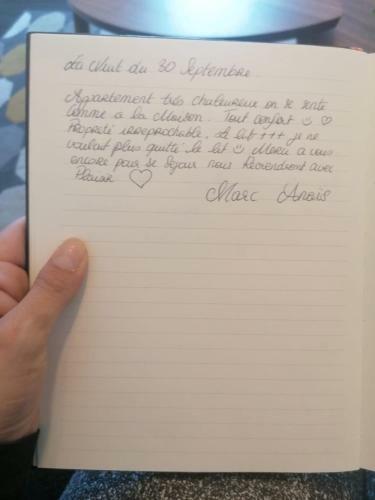 La Nuit du 30 Septembre.
Appartement très chaleureux on se sente
comme a la Maison. Tout confort ☺ ♡
Propreté irreprochable. Le lit +++ je ne
voulait plus quitté le lit ☺ Merci a vous
encore pour se séjour nous Reviendront avec
Plaisir ♡
Marc Anaïs